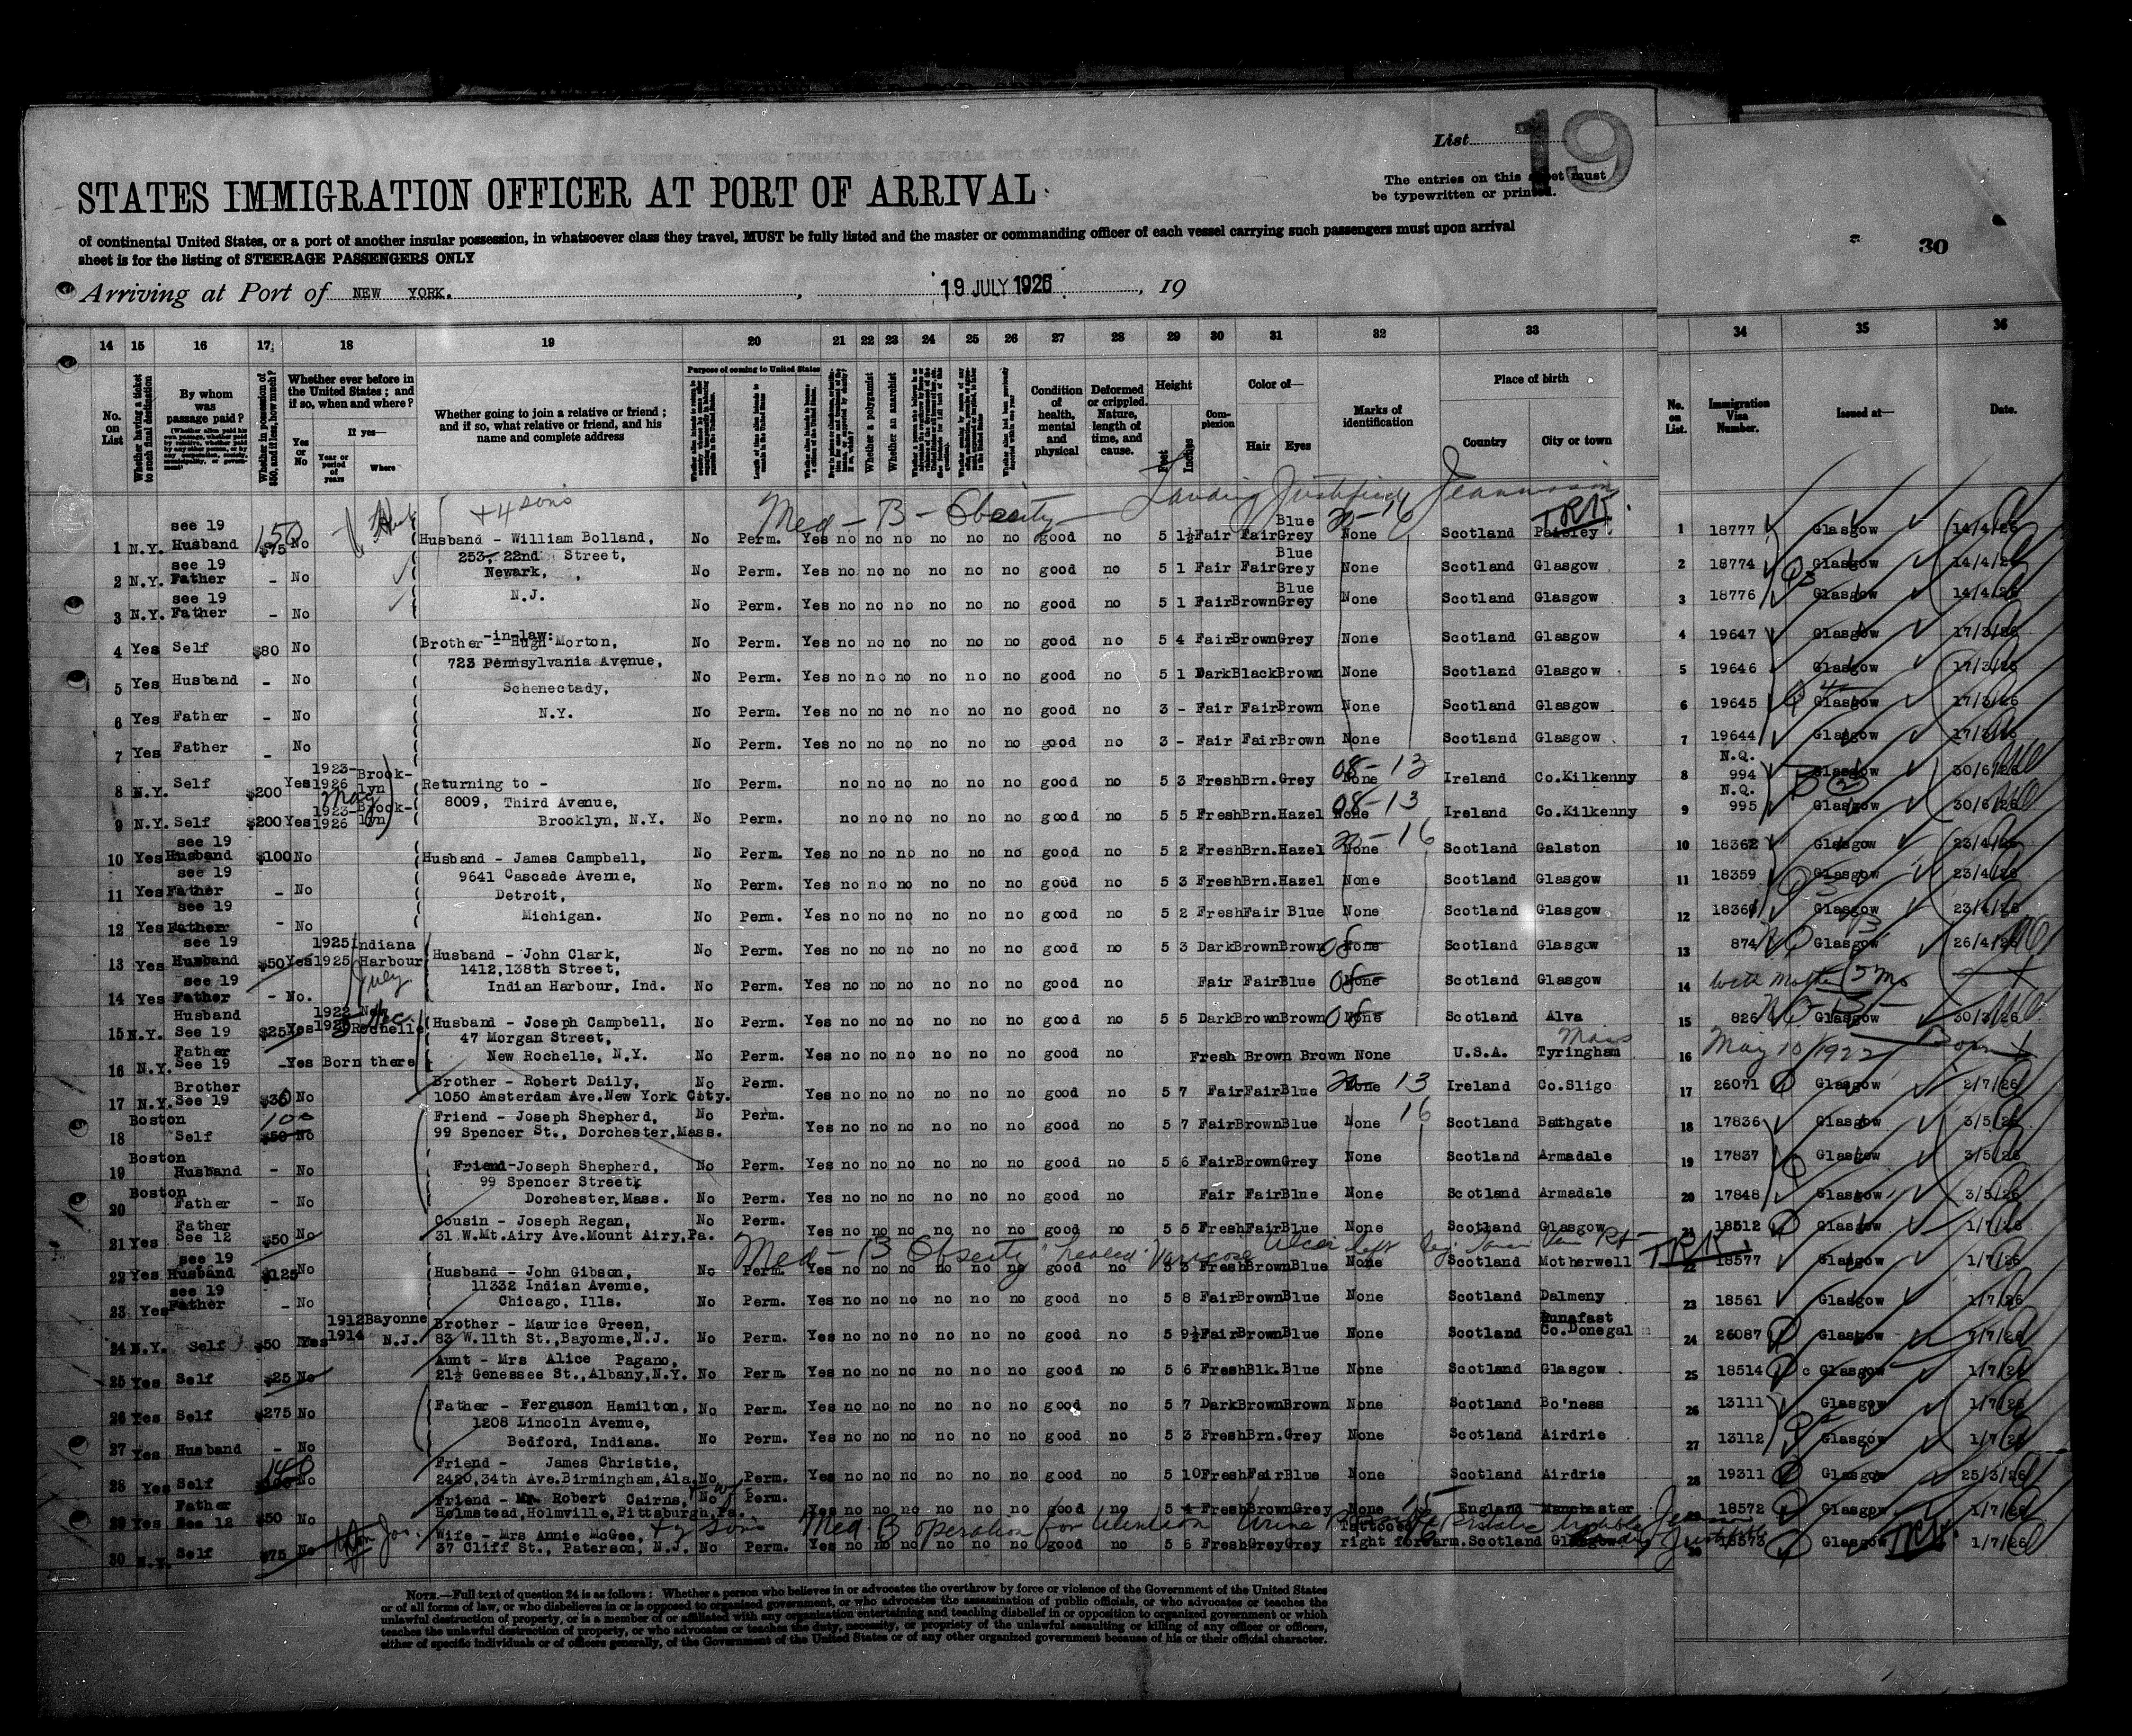 List 19
The entries on this sheet must
be typewritten or printed.
30
STATES IMMIGRATION OFFICER AT PORT OF ARRIVAL
of continental United States, or a port of another insular possession, in whatsoever class they travel, MUST be fully listed and the master or commanding officer of each vessel carrying such passengers must upon arrival
sheet is for the listing of STEERAGE PASSENGERS ONLY
Arriving at Port of NEW YORK. , 19 JULY 1926 , 19
14 15 16 17 18 19 20 21 22 23 24 25 26 27 28 29 30 31 32 33 34 35 36
No. on List
Whether having a ticket to such final destination
By whom was passage paid?
Whether in possession of $50, and if less, how much?
Whether ever before in the United States; and if so, when and where?
Yes or No
If yes—
Year or period of years
Where
Whether going to join a relative or friend; and if so, what relative or friend, and his name and complete address
Purpose of coming to United States
Whether a polygamist
Whether an anarchist
Condition of health, mental and physical
Deformed or crippled. Nature, length of time, and cause.
Height
Feet Inches
Complexion
Color of—
Hair Eyes
Marks of identification
Place of birth
Country City or town
No. on List.
Immigration Visa Number.
Issued at—
Date.
+ 4 sons Med - B - Obesity - Landing Justified
1 N.Y. see 19 Husband 150 $75 No Husband - William Bolland, No Perm. Yes no no no no no no good no 5 1½ Fair Fair Blue Grey None 20-16 Scotland Paisley 1 18777 Glasgow 14/4/26
253, 22nd Street,
2 N.Y. see 19 Father - No Newark, No Perm. Yes no no no no no no good no 5 1 Fair Fair Blue Grey None Scotland Glasgow 2 18774 Glasgow 14/4/26
N.J.
3 N.Y. see 19 Father - No No Perm. Yes no no no no no no good no 5 1 Fair Brown Blue Grey None Scotland Glasgow 3 18776 Glasgow 14/4/26
4 Yes Self $80 No Brother-in-law: - Hugh Morton, No Perm. Yes no no no no no no good no 5 4 Fair Brown Grey None Scotland Glasgow 4 19647 Glasgow 17/3/26
723 Pennsylvania Avenue,
5 Yes Husband - No Schenectady, No Perm. Yes no no no no no no good no 5 1 Dark Black Brown None Scotland Glasgow 5 19646 Glasgow 17/3/26
6 Yes Father - No N.Y. No Perm. Yes no no no no no no good no 3 - Fair Fair Brown None Scotland Glasgow 6 19645 Glasgow 17/3/26
7 Yes Father - No No Perm. Yes no no no no no no good no 3 - Fair Fair Brown None Scotland Glasgow 7 19644 Glasgow 17/3/26
8 N.Y. Self $200 Yes 1923-1926 Brooklyn Returning to - No Perm. no no no no no no good no 5 3 Fresh Brn. Grey None 08-13 Ireland Co.Kilkenny 8 N.Q. 994 Glasgow 30/6/26
8009, Third Avenue,
9 N.Y. Self $200 Yes 1923-1926 Brooklyn Brooklyn, N.Y. No Perm. no no no no no no good no 5 5 Fresh Brn. Hazel None 08-13 Ireland Co.Kilkenny 9 N.Q. 995 Glasgow 30/6/26
10 Yes see 19 Husband $100 No Husband - James Campbell, No Perm. Yes no no no no no no good no 5 2 Fresh Brn. Hazel None 20-16 Scotland Galston 10 18362 Glasgow 23/4/26
9641 Cascade Avenue,
11 Yes see 19 Father - No Detroit, No Perm. Yes no no no no no no good no 5 3 Fresh Brn. Hazel None Scotland Glasgow 11 18359 Glasgow 23/4/26
12 Yes see 19 Father - No Michigan. No Perm. Yes no no no no no no good no 5 2 Fresh Fair Blue None Scotland Glasgow 12 18360 Glasgow 23/4/26
13 Yes see 19 Husband $50 Yes 1925 1925 Indiana Harbour Husband - John Clark, No Perm. Yes no no no no no no good no 5 3 Dark Brown Brown None 08 Scotland Glasgow 13 874 Glasgow 26/4/26
July 1412,138th Street,
14 Yes see 19 Father - No. Indian Harbour, Ind. No Perm. Yes no no no no no no good no Fair Fair Blue None 08 Scotland Glasgow 14 With Mother
15 N.Y. Husband See 19 $25 Yes New Rochelle Husband - Joseph Campbell, No Perm. Yes no no no no no no good no 5 5 Dark Brown Brown None 08 Scotland Alva 15 826 Glasgow 30/3/26
47 Morgan Street,
16 N.Y. Father See 19 - Yes Born there New Rochelle, N.Y. No Perm. Yes no no no no no no good no Fresh Brown Brown None U.S.A. Tyringham Mass 16 May 10/1922 Born
17 N.Y. Brother See 19 $30 No Brother - Robert Daily, No Perm. Yes no no no no no no good no 5 7 Fair Fair Blue None 13 Ireland Co.Sligo 17 26071 Glasgow 2/7/26
1050 Amsterdam Ave.New York City.
18 Boston Self 100 $50 No Friend - Joseph Shepherd, No Perm. Yes no no no no no no good no 5 7 Fair Brown Blue None 16 Scotland Bathgate 18 17836 Glasgow 3/5/26
99 Spencer St., Dorchester,Mass.
19 Boston Husband - No Friend-Joseph Shepherd, No Perm. Yes no no no no no no good no 5 6 Fair Brown Grey None Scotland Armadale 19 17837 Glasgow 3/5/26
99 Spencer Street,
20 Boston Father - No Dorchester,Mass. No Perm. Yes no no no no no no good no Fair Fair Blue None Scotland Armadale 20 17848 Glasgow 3/5/26
21 Yes Father See 12 $50 No Cousin - Joseph Regan, No Perm. Yes no no no no no no good no 5 5 Fresh Fair Blue None Scotland Glasgow 21 18512 Glasgow 1/7/26
31 W.Mt.Airy Ave.Mount Airy,Pa.
Med - B Obesity "healed" Varicose Ulcer left leg
22 Yes see 19 Husband $125 No Husband - John Gibson, No Perm. Yes no no no no no no good no 5 3 Fresh Brown Blue None Scotland Motherwell 22 18577 Glasgow 1/7/26
11332 Indian Avenue,
23 Yes see 19 Father - No Chicago, Ills. No Perm. Yes no no no no no no good no 5 8 Fair Brown Blue None Scotland Dalmeny 23 18561 Glasgow 1/7/26
24 N.Y. Self $50 Yes 1912 1914 Bayonne N.J. Brother - Maurice Green, No Perm. Yes no no no no no no good no 5 9½ Fair Brown Blue None Scotland Co.Donegal 24 26087 Glasgow
83 W.11th St.,Bayonne,N.J.
25 Yes Self $25 No Aunt - Mrs Alice Pagano, No Perm. Yes no no no no no no good no 5 6 Fresh Blk. Blue None Scotland Glasgow 25 18514 Glasgow 1/7/26
21½ Genessee St.,Albany,N.Y.
26 Yes Self $275 No Father - Ferguson Hamilton, No Perm. Yes no no no no no no good no 5 7 Dark Brown Brown None Scotland Bo'ness 26 13111 Glasgow 1/7/26
1208 Lincoln Avenue,
27 Yes Husband - No Bedford, Indiana. No Perm. Yes no no no no no no good no 5 3 Fresh Brn. Grey None Scotland Airdrie 27 13112 Glasgow 1/7/26
28 Yes Self 140 No Friend - James Christie, No Perm. Yes no no no no no no good no 5 10 Fresh Fair Blue None Scotland Airdrie 28 19311 Glasgow 25/3/26
2420,34th Ave.Birmingham,Ala.
29 Yes Father See 12 $50 No Friend - Mr Robert Cairns, No Perm. Yes no no no no no no good no 5 4 Fresh Brown Grey None England Manchester 29 18572 Glasgow 1/7/26
Holmstead,Holmville,Pittsburgh,Pa.
Med B operation for retention Urine
30 N.Y. Self $75 No Wife - Mrs Annie McGee, No Perm. Yes no no no no no no good no 5 6 Fresh Grey Grey Tattooed right forearm. Scotland Glasgow 30 18573 Glasgow 1/7/26
37 Cliff St., Paterson, N.J.
NOTE.—Full text of question 24 is as follows: Whether a person who believes in or advocates the overthrow by force or violence of the Government of the United States
or of all forms of law, or who disbelieves in or is opposed to organized government, or who advocates the assassination of public officials, or who advocates or teaches the
unlawful destruction of property, or is a member of or affiliated with any organization entertaining and teaching disbelief in or opposition to organized government or which
teaches the unlawful destruction of property, or who advocates or teaches the duty, necessity, or propriety of the unlawful assaulting or killing of any officer or officers,
either of specific individuals or of officers generally, of the Government of the United States or of any other organized government because of his or their official character.